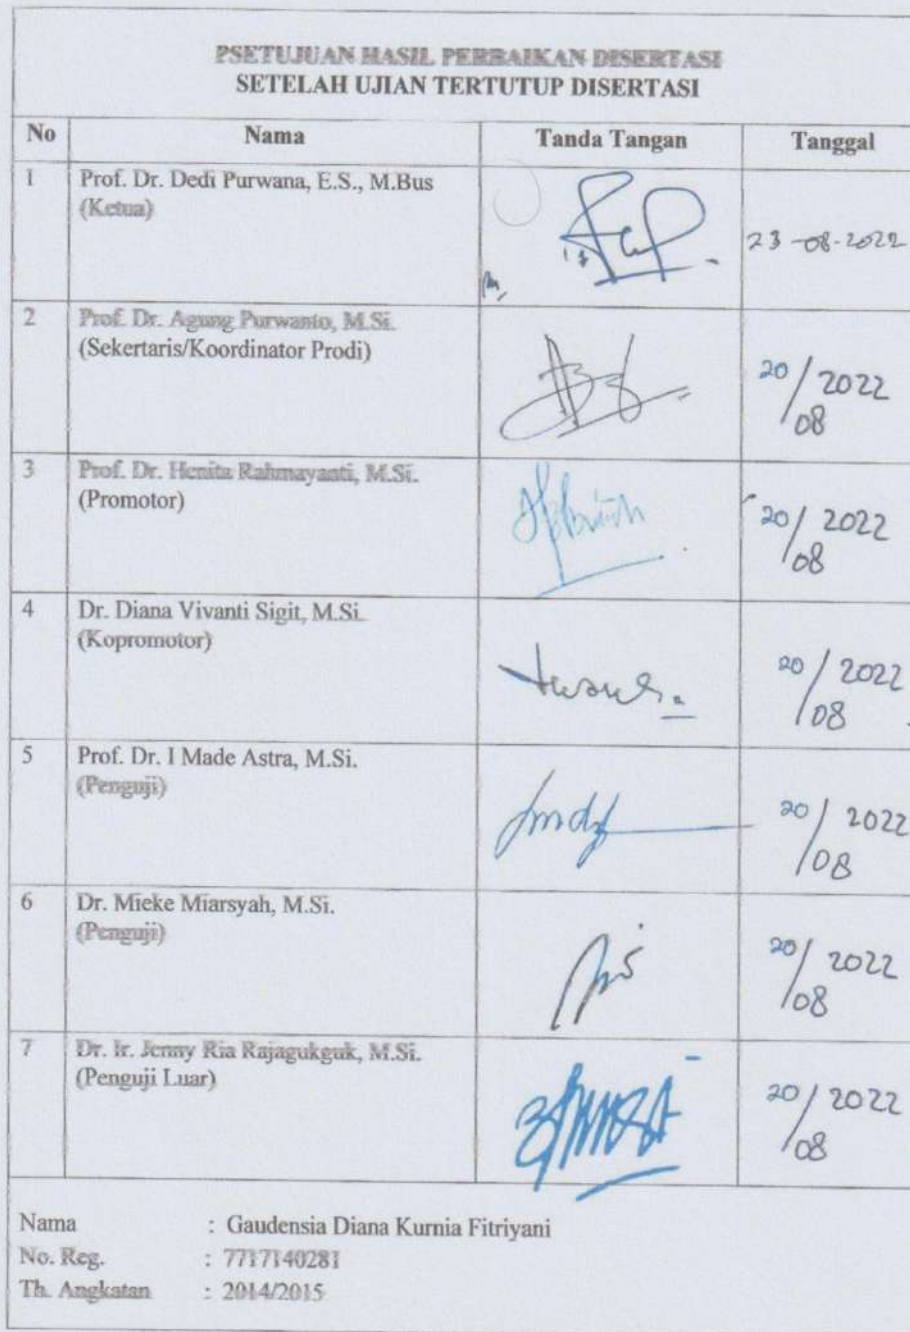 PSETUJUAN HASIL PERBAIKAN DISERTASI
SETELAH UJIAN TERTUTUP DISERTASI
No Nama Tanda Tangan Tanggal
1 Prof. Dr. Dedi Purwana, E.S., M.Bus
(Ketua)
23-08-2022
2 Prof. Dr. Agung Purwanto, M.Si.
(Sekertaris/Koordinator Prodi)
20/08 2022
3 Prof. Dr. Henita Rahmayanti, M.Si.
(Promotor)
20/08 2022
4 Dr. Diana Vivanti Sigit, M.Si.
(Kopromotor)
20/08 2022
5 Prof. Dr. I Made Astra, M.Si.
(Penguji)
20/08 2022
6 Dr. Mieke Miarsyah, M.Si.
(Penguji)
20/08 2022
7 Dr. Ir. Jenny Ria Rajagukguk, M.Si.
(Penguji Luar)
20/08 2022
Nama : Gaudensia Diana Kurnia Fitriyani
No. Reg. : 7717140281
Th. Angkatan : 2014/2015